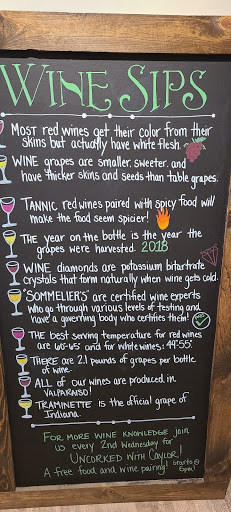 WINE SIPS
MOST red wines get their color from their
skins but actually have white flesh.
WINE grapes are smaller, sweeter, and
have thicker skins and seeds than table grapes.
TANNIC red wines paired with spicy food will
make the food seem spicier!
THE year on the bottle is the year the
grapes were harvested. 2018
WINE diamonds are potassium bitartrate
crystals that form naturally when wine gets cold.
"SOMMELIER'S" are certified wine experts
who go through various levels of testing and
have a governing body who certifies them!
THE best serving temperature for red wines
are 60°-65° and for white wines: 44°-55°.
THERE are 2.1 pounds of grapes per bottle
of wine.
ALL of our wines are produced in
VALPARAISO!
TRAMINETTE is the official grape of
Indiana.
FOR MORE WINE KNOWLEDGE join
us every 2nd Wednesday for
UNCORKED WITH CAYLOR!
A free food and wine pairing! Starts @
6pm!